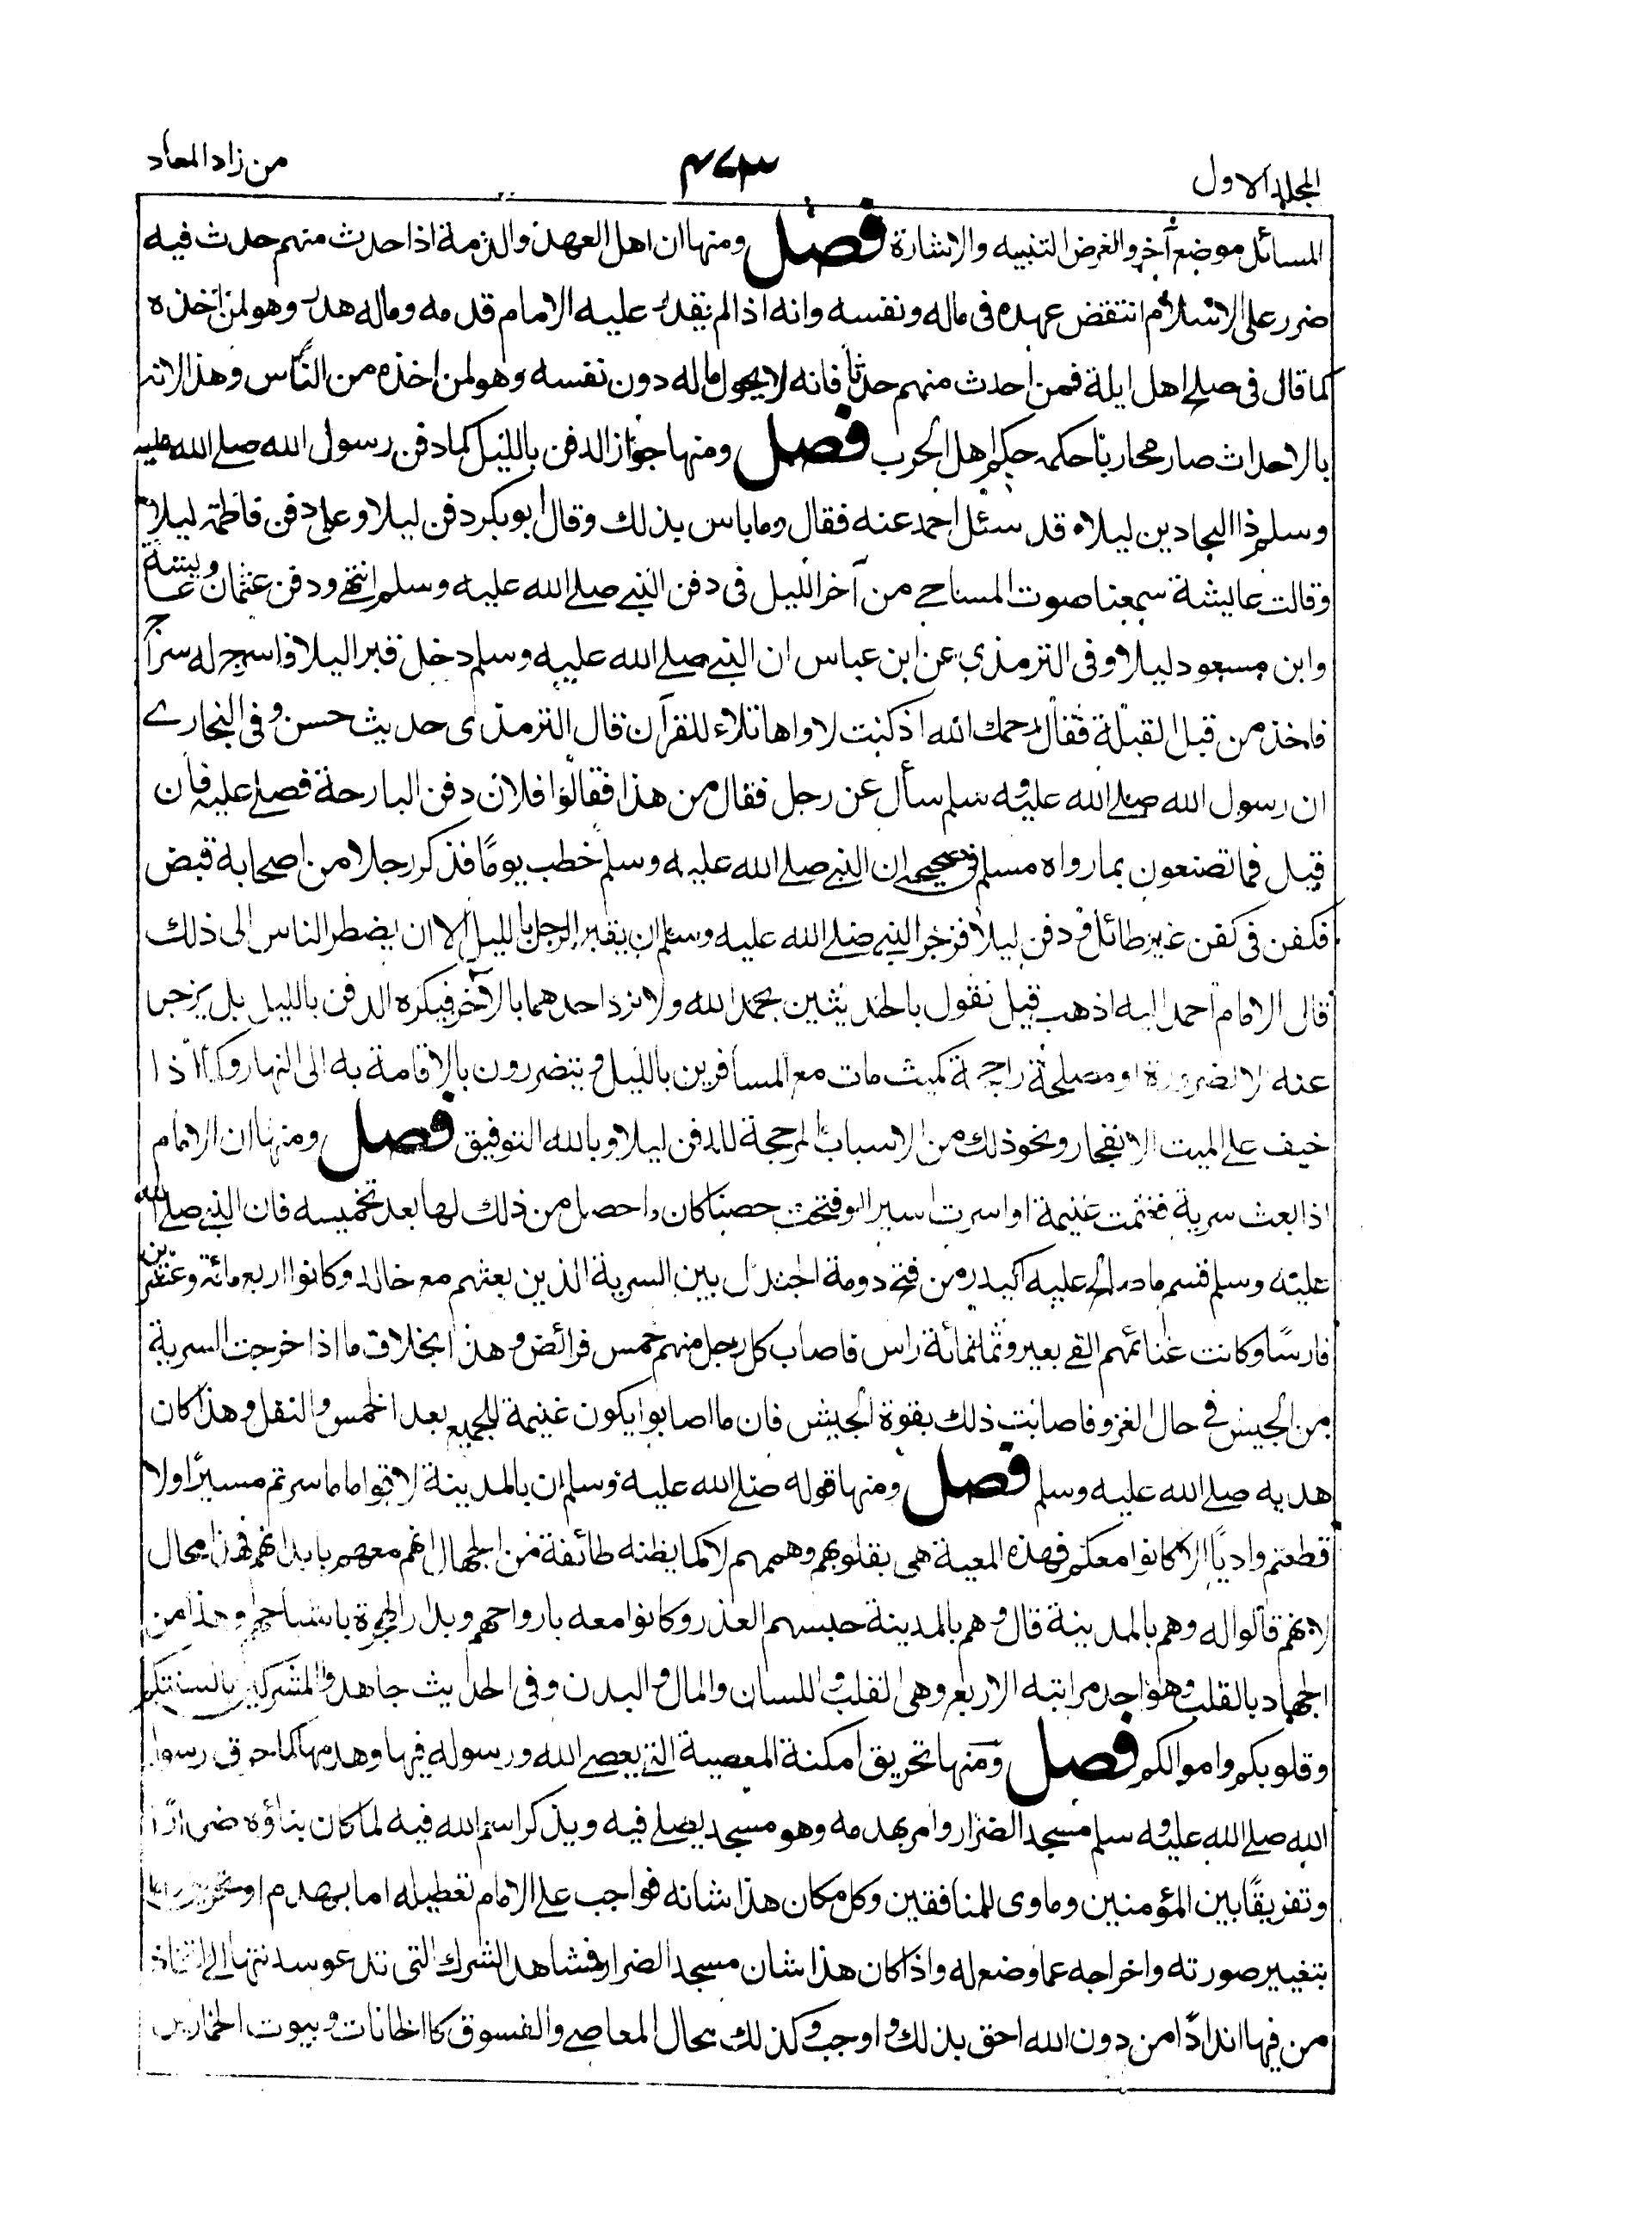 المجلد الاول
٤٧٣
من زاد المعاد
المسائل موضع آخر والغرض التنبيه والاشارة فصل ومنها ان اهل العهد والذمة اذا حدث منهم حدث فيه
ضرر على الاسلام انتقض عهده فى ماله ونفسه وانه اذا لم يقدر عليه الامام فدمه وماله هدر وهو لمن اخذه
كما قال فى صلح اهل ايلة فمن احدث منهم حدثا فانه لا يحول ماله دون نفسه وهو لمن اخذه من الناس وهذا لانه
بالاحداث صار محاربا حكمه حكم اهل الحرب فصل ومنها جواز الدفن بالليل كما دفن رسول الله صلے الله عليه
وسلم ذا البجادين ليلا وقد سئل احمد عنه فقال وما باس بذلك وقال ابو بكر دفن ليلا وعلى دفن فاطمة ليلا
وقالت عايشة سمعنا صوت المساحے من آخر الليل فى دفن النبے صلے الله عليه وسلم انتهے ودفن عثمان وعايشة
وابن مسعود ليلا وفى الترمذي عن ابن عباس ان النبے صلے الله عليه وسلم دخل قبرا ليلا فاسرج له سراج
فاخذه من قبل القبلة فقال رحمك الله ان كنت لاواها تلاء للقرآن قال الترمذى حديث حسن وفى البخارے
ان رسول الله صلے الله عليه وسلم سأل عن رجل فقال من هذا فقالوا فلان دفن البارحة فصلے عليه فأن
قيل فما تصنعون بما رواه مسلم فى صحيحه ان النبے صلے الله عليه وسلم خطب يومًا فذكر رجلا من اصحابه قبض
فكفن فى كفن غير طائل ودفن ليلا فزجر النبے صلے الله عليه وسلم ان يقبر الرجل بالليل الا ان يضطر الناس الى ذلك
قال الامام احمد اليه اذهب قيل نقول بالحديثين بحمد الله ولا نرد احدهما بالآخر فيكره الدفن بالليل بل يزجر
عنه الا لضرورة او مصلحة راجحة كميت مات مع المسافرين بالليل ويتضررون بالاقامة به الى النهار وكما اذا
خيف على الميت الانفجار ونحو ذلك من الاسباب المرجحة للدفن ليلا وبالله التوفيق فصل ومنها ان الامام
اذا بعث سرية فغنمت غنيمة او اسرت اسيرا او فتحت حصنا كان ما حصل من ذلك لها بعد تخميسه فان النبے صلے الله
عليه وسلم قسم ما صالح عليه اكيدر من فتح دومة الجندل بين السرية الذين بعثهم مع خالد وكانوا اربعمائة وعشرين
فارسًا وكانت غنائمهم الفے بعير وثمانمائة راس فاصاب كل رجل منهم خمس فرائض وهذا بخلاف ما اذا خرجت السرية
من الجيش فى حال الغزو فاصابت ذلك بقوة الجيش فان ما اصابوا يكون غنيمة للجميع بعد الخمس والنفل وهذا كان
هديه صلے الله عليه وسلم فصل ومنها قوله صلے الله عليه وسلم ان بالمدينة لاقواما ما سرتم مسيرًا ولا
قطعتم واديًا الا كانوا معكم فهذه المعية هى بقلوبهم وهممهم لا كما يظنه طائفة من الجهال انهم معهم بابدانهم فهذا محال
لانهم قالوا له وهم بالمدينة قال وهم بالمدينة حبسهم العذر وكانوا معه بارواحهم وبدار الهجرة باشباحهم وهذا من
الجهاد بالقلب وهو احد مراتبه الاربع وهى القلب واللسان والمال والبدن وفى الحديث جاهدوا المشركين بالسنتكم
وقلوبكم واموالكم فصل ومنها تحريق امكنة المعصية التے يعصے الله ورسوله فيها وهدمها كما حرق رسول
الله صلے الله عليه وسلم مسجد الضرار وامر بهدمه وهو مسجد يصلے فيه ويذكر اسم الله فيه لما كان بناؤه ضرارًا
وتفريقًا بين المؤمنين وماوى للمنافقين وكل مكان هذا شانه فواجب على الامام تعطيله اما بهدم او تحريق واما
بتغيير صورته واخراجه عما وضع له واذا كان هذا شان مسجد الضرار فمشاهد الشرك التى تدعو سدنتها الى اتخاذ
من فيها اندادًا من دون الله احق بذلك واوجب وكذلك محال المعاصے والفسوق كالحانات وبيوت الخمارين